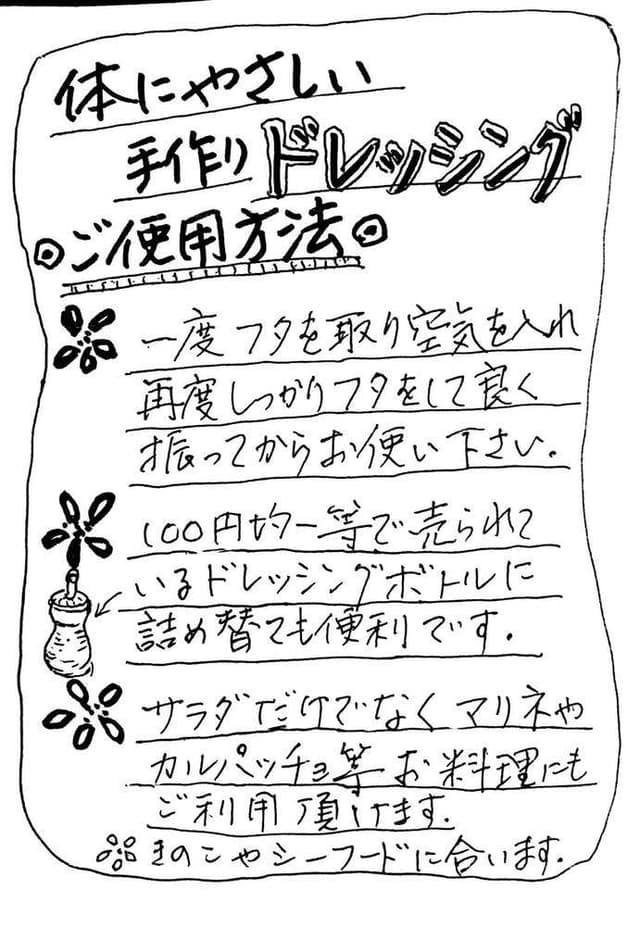 体にやさしい
手作りドレッシング
◎ご使用方法◎
一度フタを取り空気を入れ
再度しっかりフタをして良く
振ってからお使い下さい。
100円均一等で売られて
いるドレッシングボトルに
詰め替ても便利です。
サラダだけでなくマリネや
カルパッチョ等お料理にも
ご利用頂けます。
きのこやシーフードに合います。